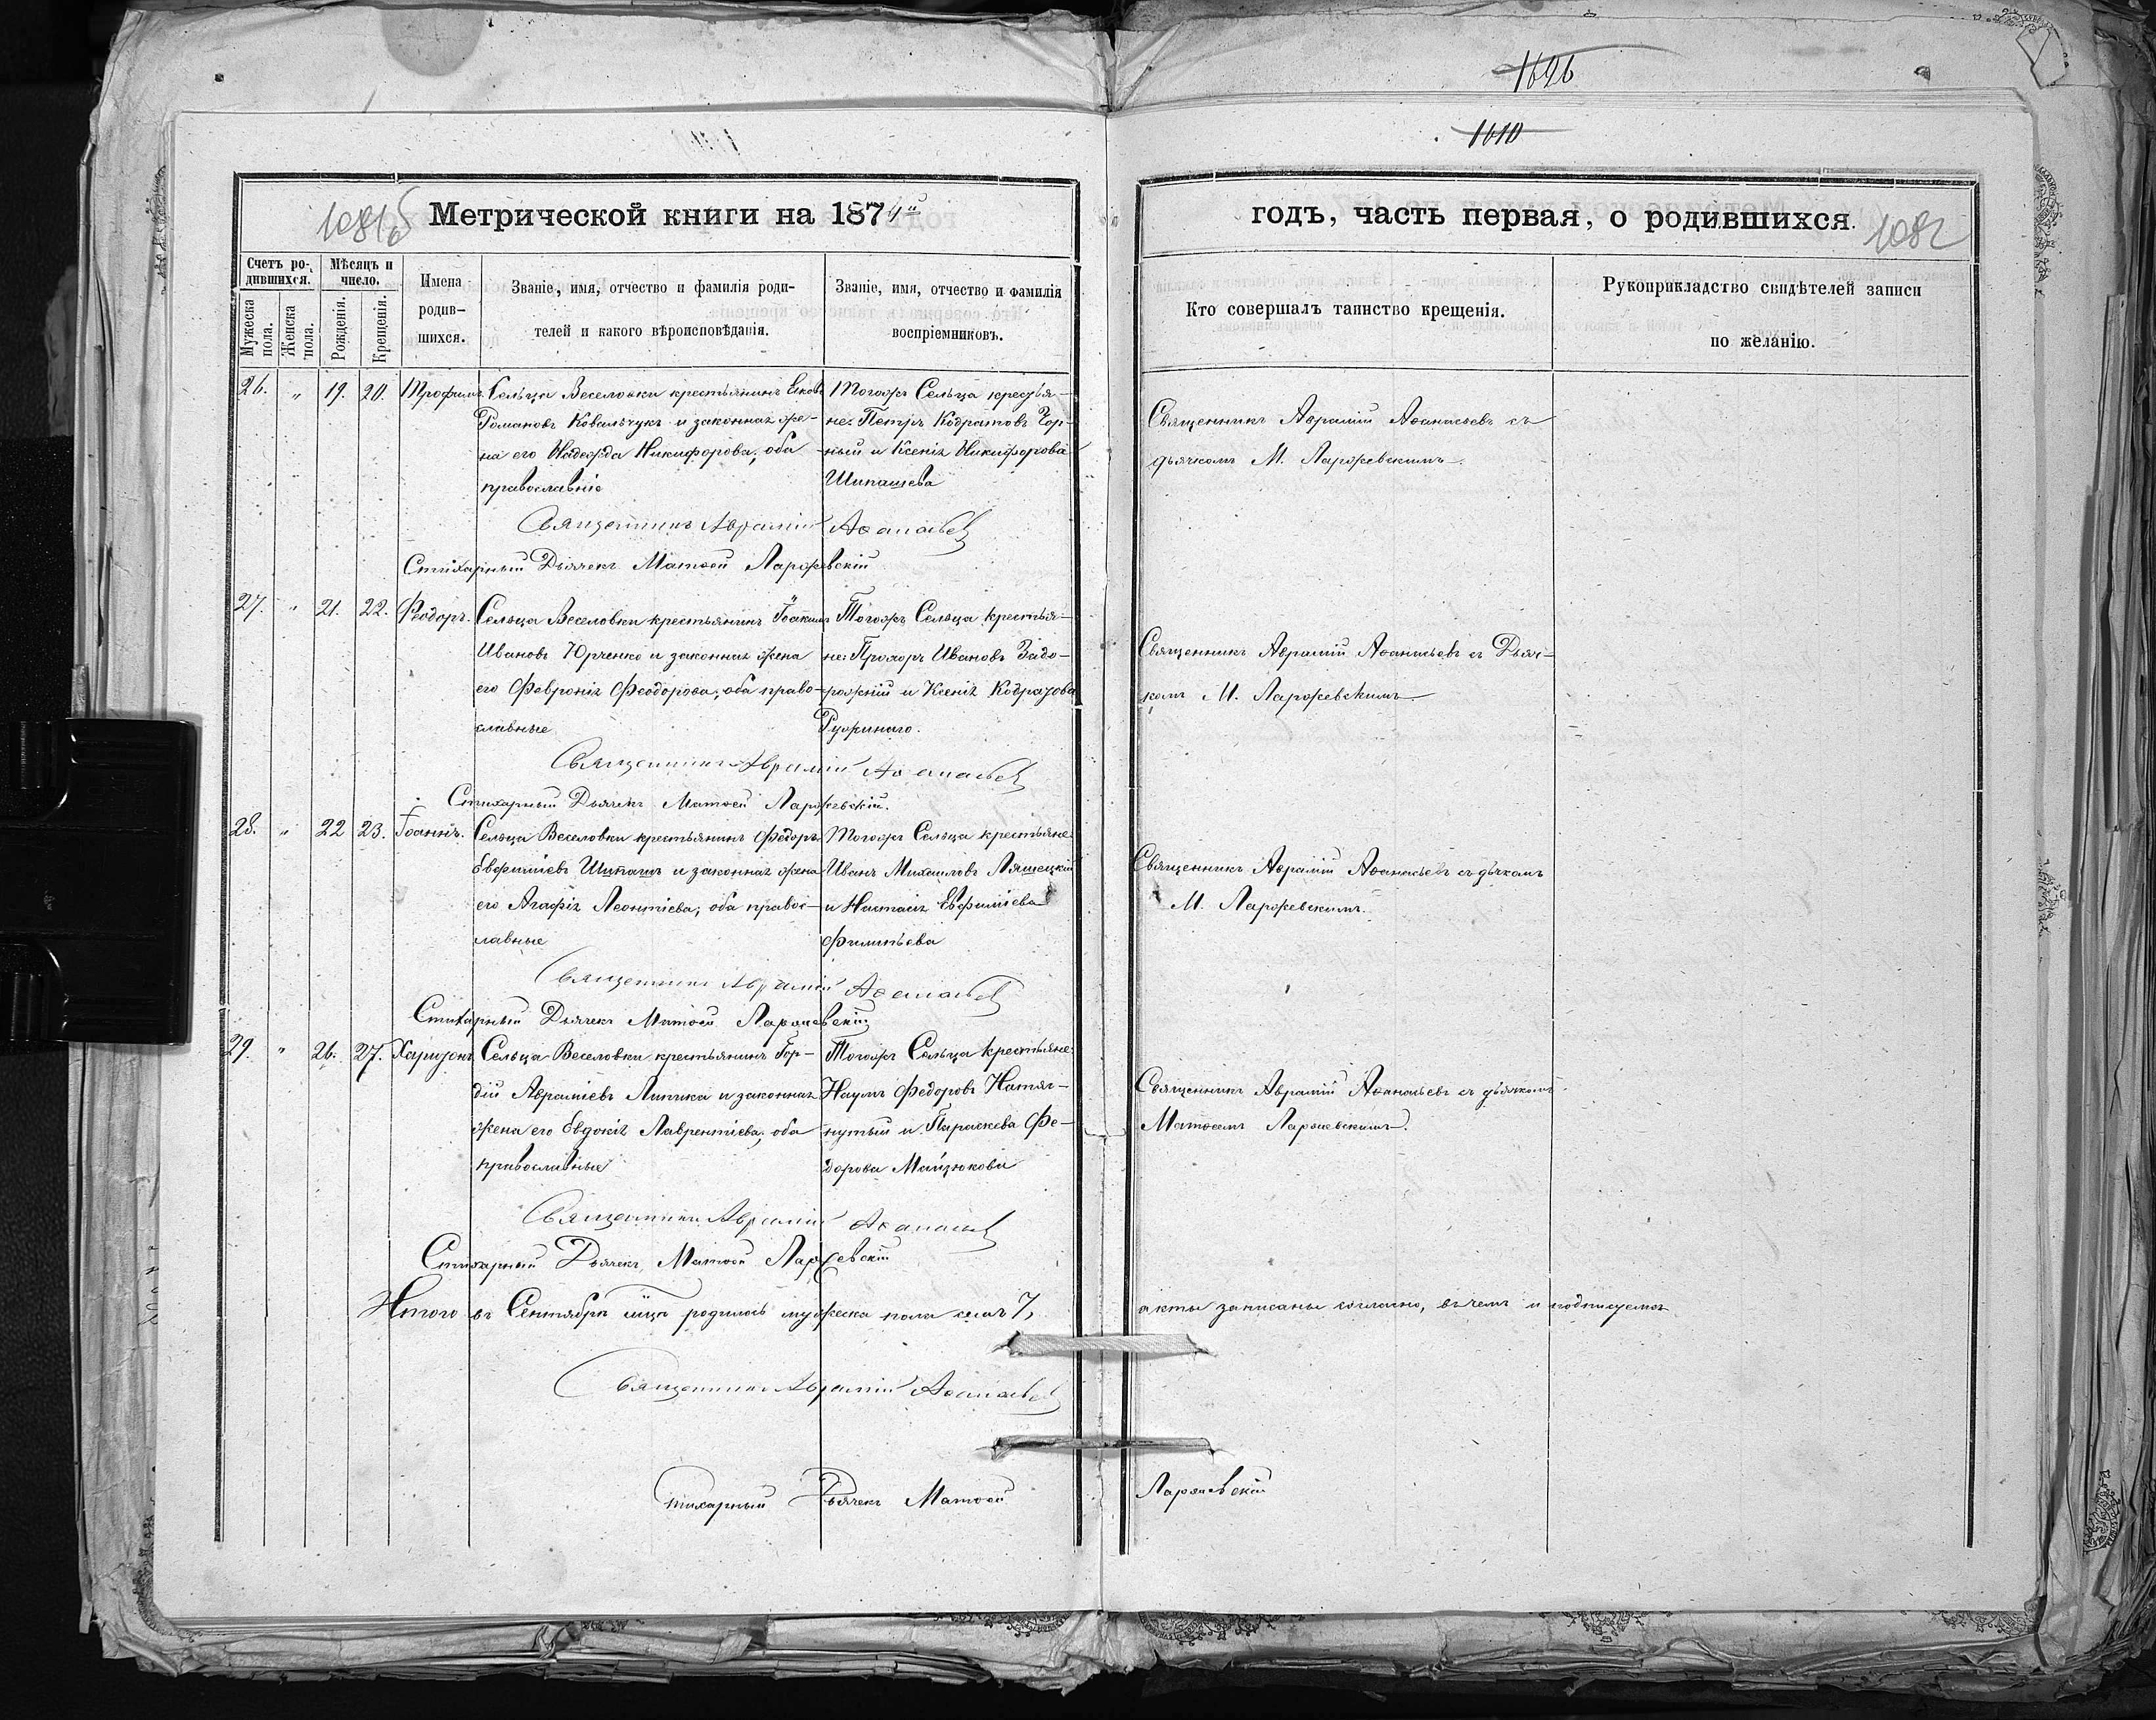 1626
1610
1081б Метрической книги на 1874й
годъ, часть первая, о родившихся. 1082
Счетъ родившихся.
Мѣсяцъ и число.
Мужеска пола.
Женска пола.
Рожденія.
Крещенія.
Имена родив-
шихся.
Званіе, имя, отчество и фамилія роди-
телей и какого вѣроисповѣданія.
Званіе, имя, отчество и фамилія
воспріемниковъ.
Кто совершалъ таинство крещенія.
Рукоприкладство свидѣтелей записи
по желанію.
26. " 19. 20. Трофимъ. Сельца Веселовки крестьянинъ Яковъ
Романовъ Ковальчукъ и законная же-
на его Надежда Никифорова, оба
православніе
Тогожъ Сельца крестья-
не: Петръ Кодратовъ Чор-
ный и Ксенія Никифорова
Шипашева
Священникъ Аврамій Аѳанасьевъ съ
дьячкомъ М. Ларжевскимъ.
Священникъ Аврамій Аѳанасьевъ
Стихарный Дьячекъ Матѳей Ларжевскій
27. " 21. 22. Феодоръ. Сельца Веселовки крестьянинъ Іоакимъ
Ивановъ Юрченко и законная жена
его ФеВронія Феодорова, оба право-
славные
Тогожъ Сельца крестья-
не: Прохоръ Ивановъ Задо-
рожній и Ксенія Кодратова
Священникъ Аврамій Аѳанасьевъ съ Дьяч-
комъ М. Ларжевскимъ
Священникъ Аврамій Аѳанасьевъ
Стихарный Дьячекъ Матѳей Ларжевскій.
28. " 22 23. Іоаннъ. Сельца Веселовки крестьянинъ Федоръ
Евфиміевъ Шипашъ и законная жена
его Агафія Леонтіева, оба правос-
лавные
Тогожъ Сельца крестьяне:
Иванъ Михаиловъ
и Настасія Евфиміева
Филипьева
Священникъ Аврамій Аѳанасьевъ съ дьчкомъ
М. Ларжевскимъ.
Священникъ Аврамій Аѳанасьевъ
Стихарный Дьячекъ Матѳей Ларжевскій
29. " 26. 27. Харитонъ Сельца Веселовки крестьянинъ Гор-
дій Авраміевъ Липика и законная
жена его Евдокія Лаврентіева, оба
православные
Тогожъ Сельца крестьяне:
Наумъ Федоровъ Натяг-
нутый и Параскева Фе-
дорова Майзюкова
Священникъ Аврамій Аѳанасьевъ съ дьячкомъ
Матѳеемъ Ларжевскимъ.
Священникъ Аврамій Аѳанасьевъ
Стихарный Дьячекъ Матѳей Ларжевскій
Итого въ Сентябрѣ м͠цѣ родилось мужеска пола семь 7, акты записаны согласно, въ чемъ и подписуемся
Священникъ Аврамій Аѳанасьевъ
Стихарный Дьячекъ Матѳей Ларжевскій